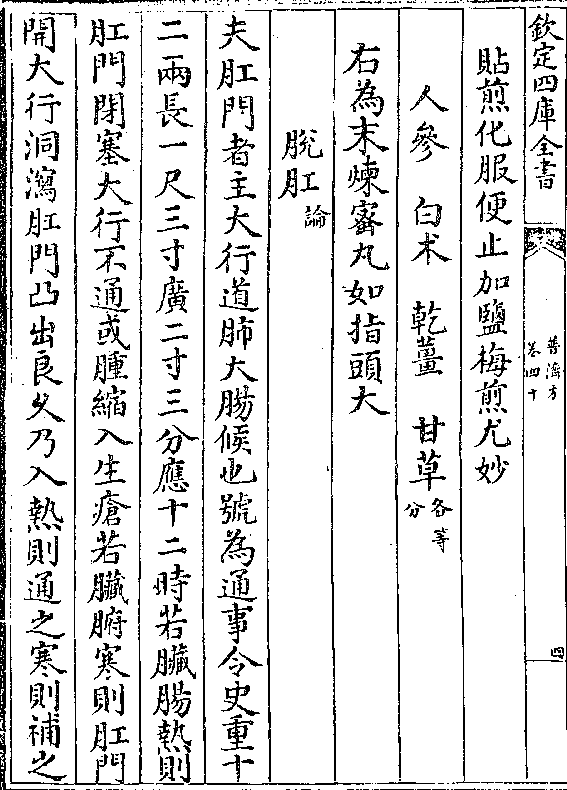 欽定四庫全書
普濟方
卷四十
四
貼煎化服便止加鹽梅煎尤妙
人參 白术 乾薑 甘草各等分
右為末煉蜜丸如指頭大
脫肛論
夫肛門者主大行道肺大腸候也號為通事令史重十
二兩長一尺三寸廣二寸三分應十二時若臟腸熱則
肛門閉塞大行不通或腫縮入生瘡若臟腑寒則肛門
開大行洞瀉肛門凸出良久乃入熱則通之寒則補之